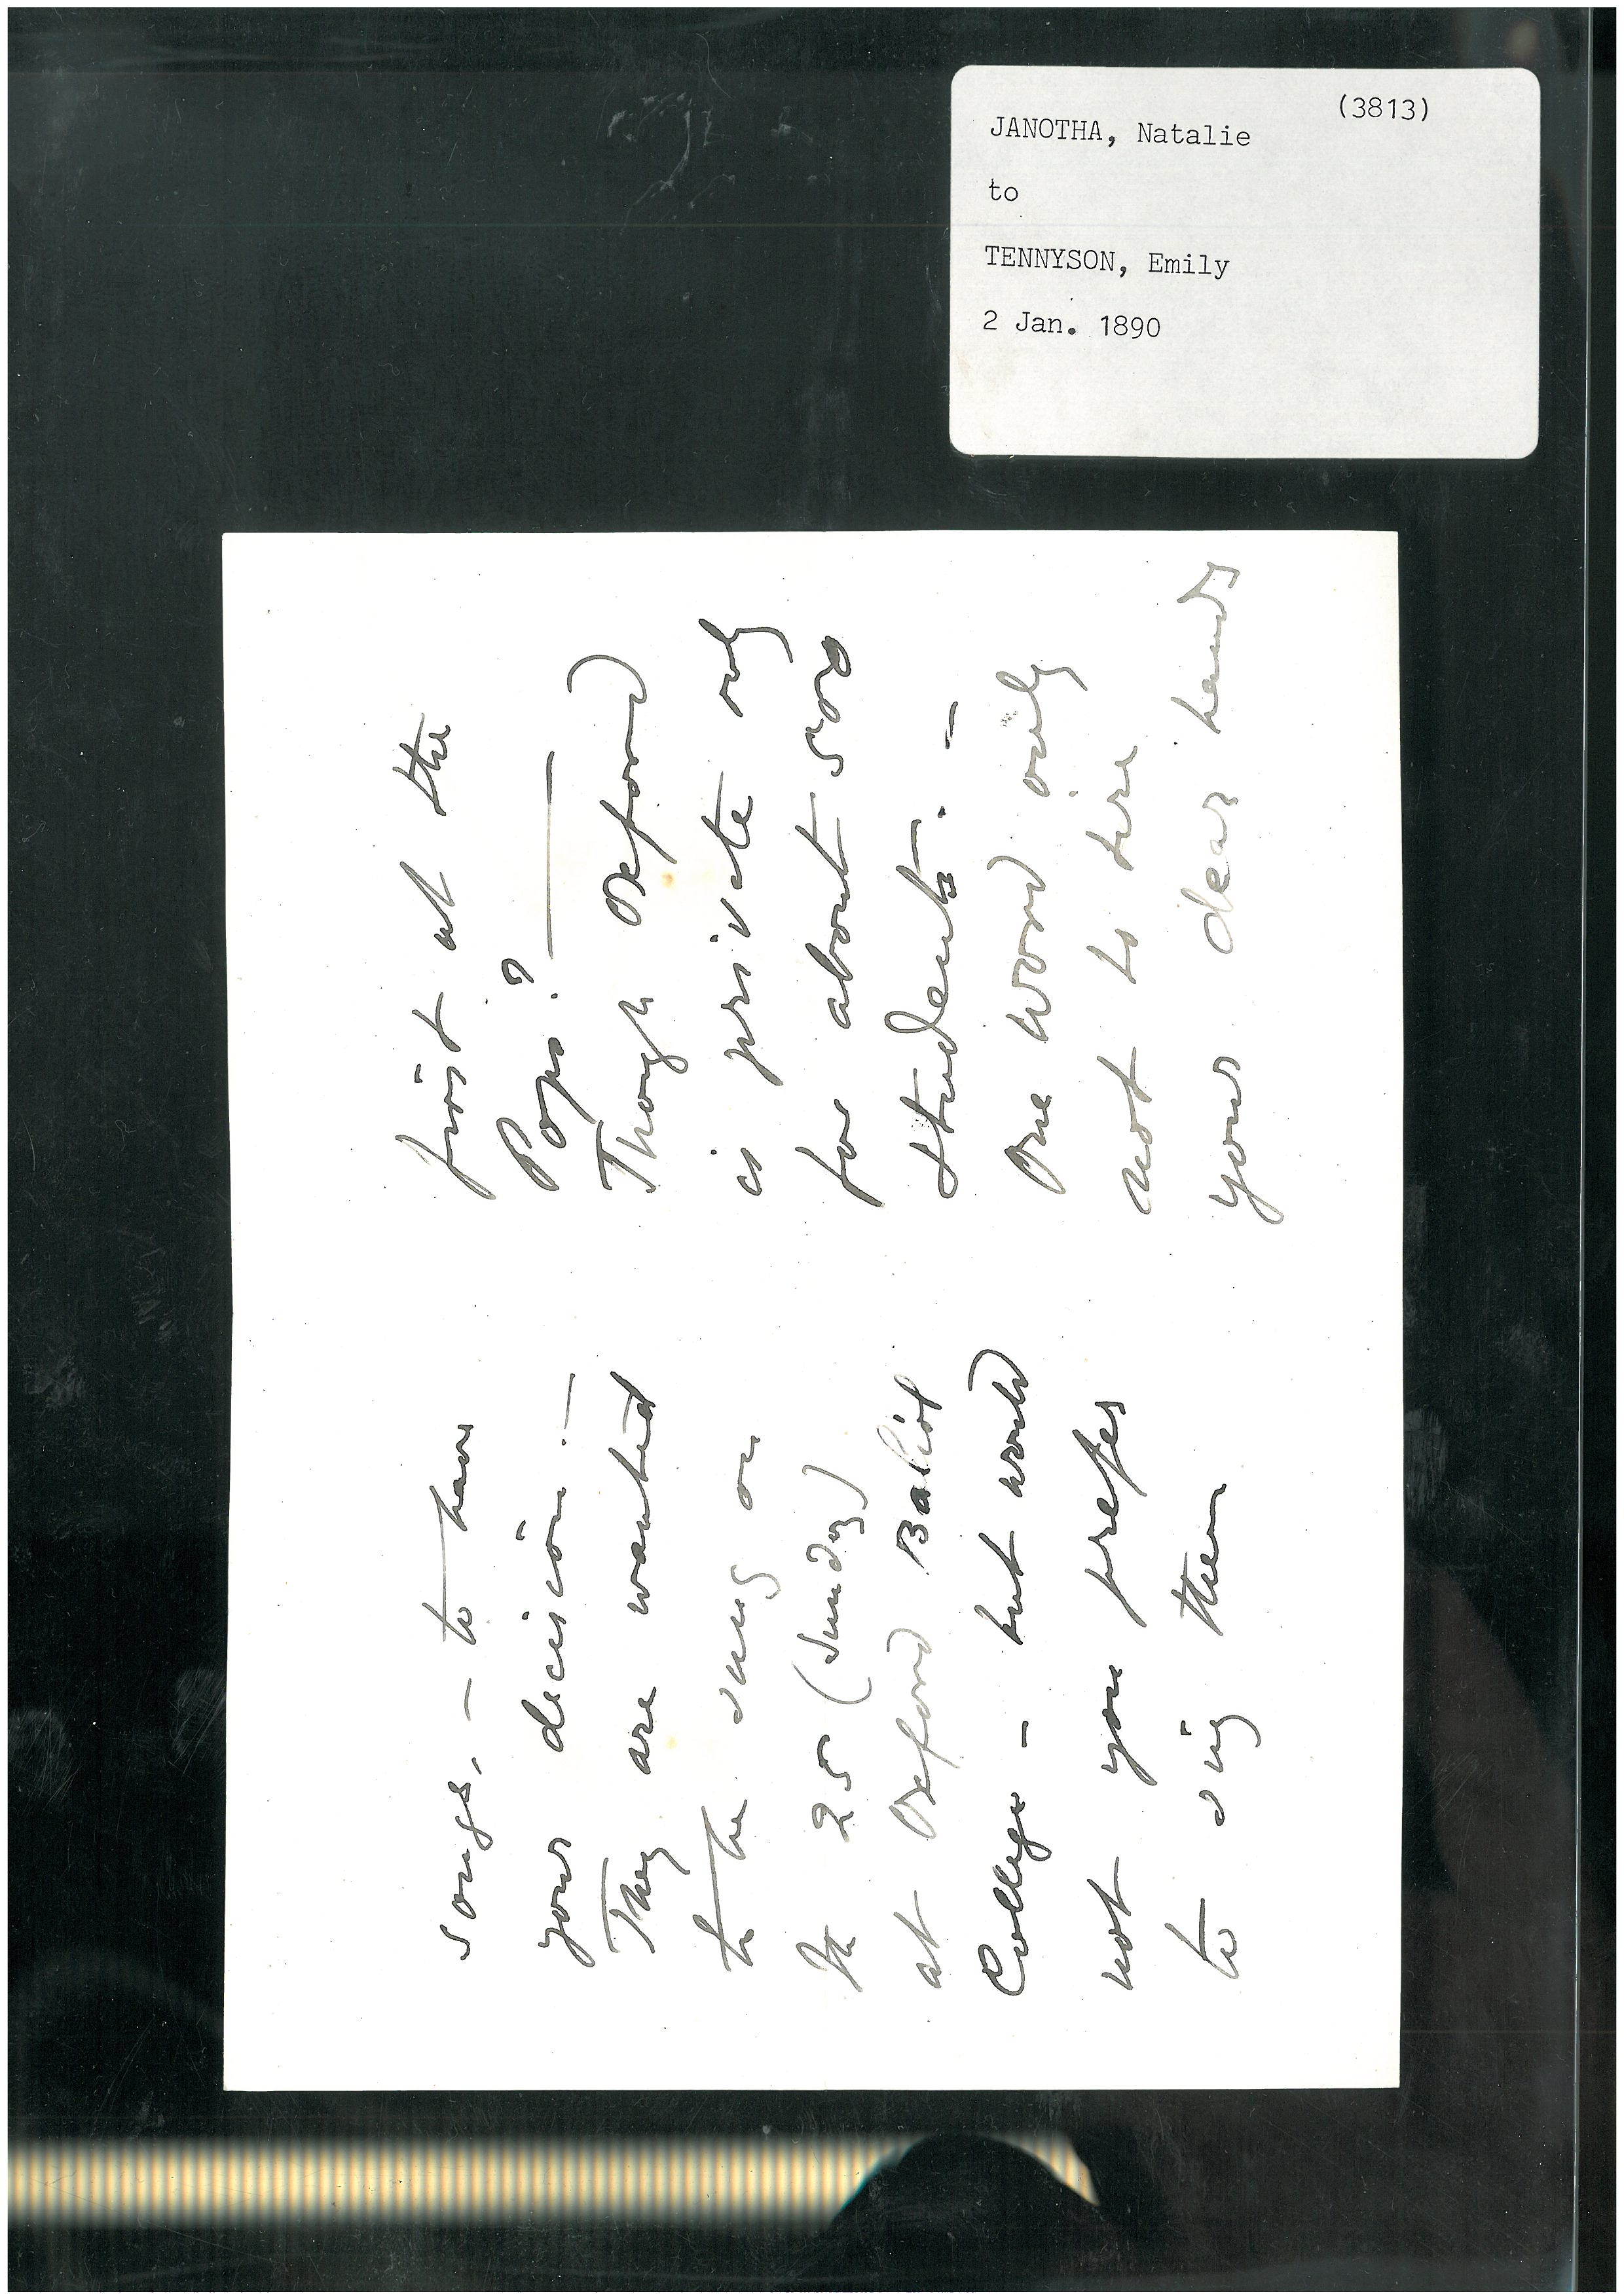 (3813)
JANOTHA, Natalie
to
TENNYSON, Emily
2 Jan. 1890
songs, – to have
your decision. –
They are wanted
to be sung on
the 25 (Sunday)
at Oxford Baliol
College – but would
not you prefer
to sing them
first at the
Pops? —
Though Oxford
is private only
for about 500
students. –
One word only
not to tire
your dear hands